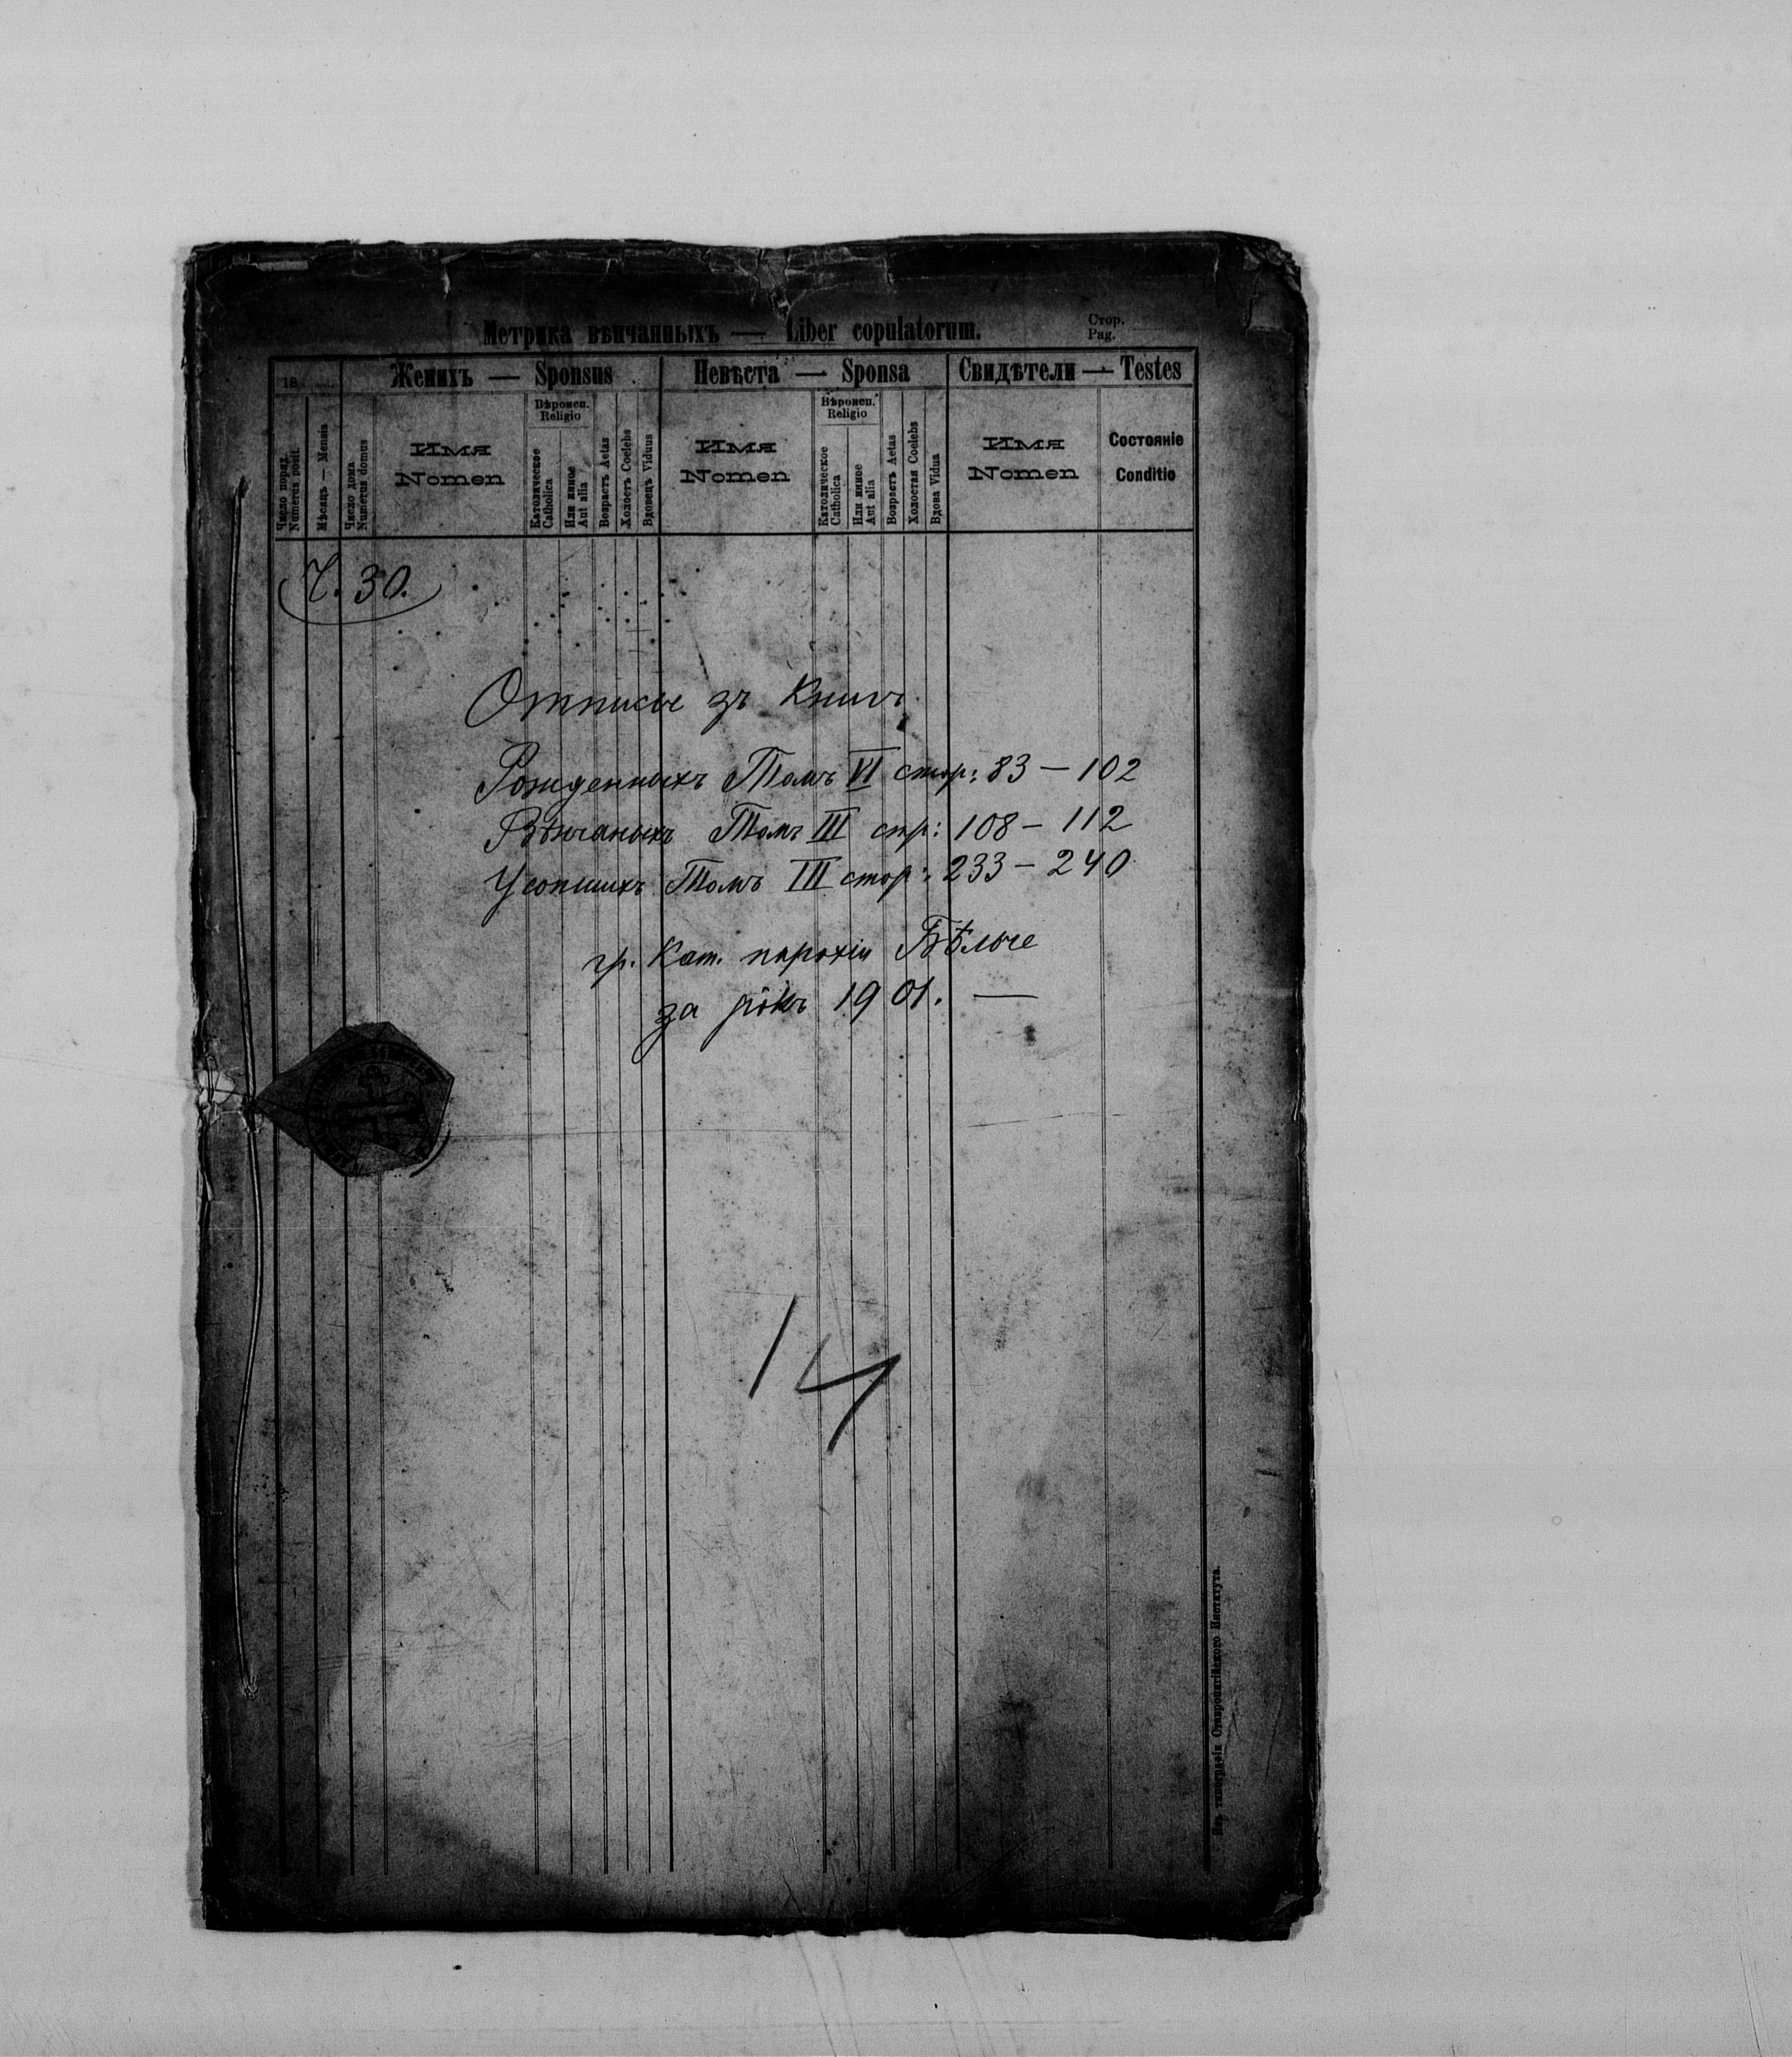 Метрика вѣнчанныхъ — Liber copulatorum.
Стор.
Pag.
18
Женихъ — Sponsus
Невѣста — Sponsa
Свидѣтели — Testes
Число поряд.
Numerus posit.
Мѣсяць — Mensis
Число дома
Numerus domus
Имя
Nomen
Вѣроисп.
Religio
Католическое
Catholica
Или инное
Aut alia
Возрастъ Aetas
Холостъ Coelebs
Вдовецъ Viduus
Имя
Nomen
Вѣроисп.
Religio
Католическое
Catholica
Или инное
Aut alia
Возрастъ Aetas
Холостая Coelebs
Вдова Vidua
Имя
Nomen
Состояніе
Conditio
Ч. 30.
Отписы зъ Книгъ
Рожденныхъ Томъ VI стор: 83 — 102
Вѣнчаныхъ Томъ III стр: 108 — 112
Усопшихъ Томъ III стор: 233 — 240
гр. Кат. парохіи Бѣлче
за рôкъ 1901. —
14
Изъ типографіи Ставропигійского Института.